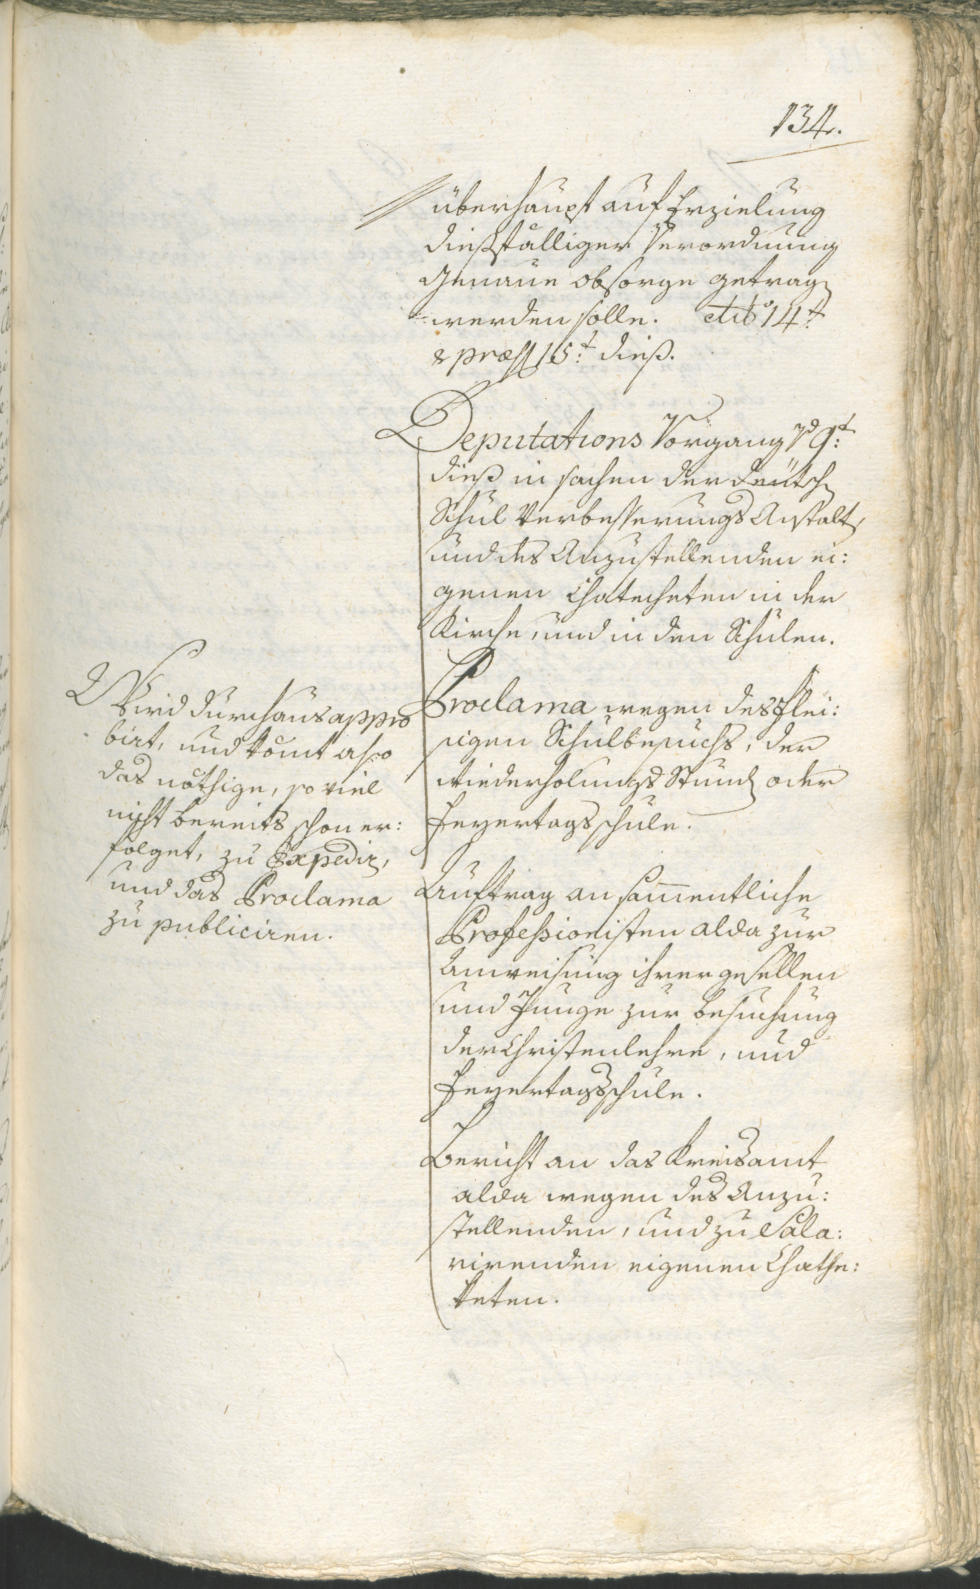 134.
überhaupt auf Erzielung
dießfälliger Verordnung
genaue obsorge getragen
werden solle. 14t
& præs 15t dieß.
Deputations Vorgang 9t
dieß in sachen der deutschen
Schul Verbesserungs Anstalt,
und des Anzustellenden ei:
genen Chatecheten in der
Kirche, und in den Schulen.
Proclama wegen des flei:
sigen Schulbesuchs, der
wiederholungs Stunden oder
Feyertagsschule.
Auftrag an sammentliche
Professionisten alda zur
Anweisung ihrer gesellen
und Junge zur besuchung
der Christenlehre, und
Feyertagsschule.
Bericht an das Kreisamt
alda wegen des Anzu:
stellenden, und zu Sala:
rirenden eigenen Chathe:
keten.
Wird durchaus appro
birt, und komt also
das nöthige, so viel
nicht bereits schon er:
folget, zu Expedir,
und das Proclama
zu publiciren.